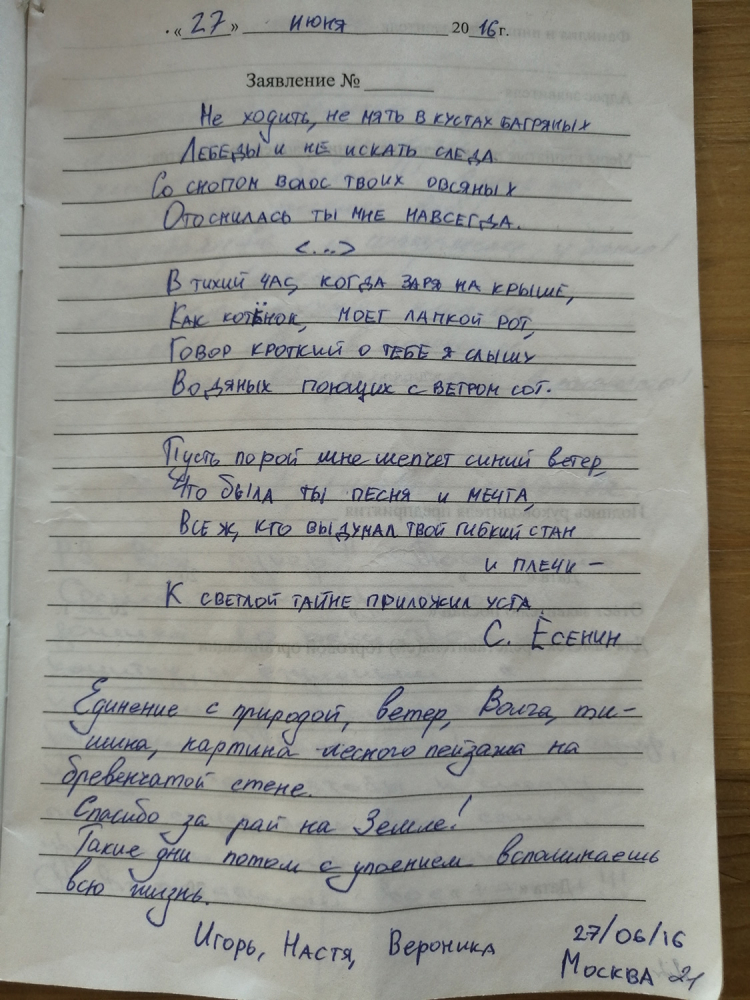 «27» июня 2016г.
Заявление №
Не ходить, не мять в кустах багряных
Лебеды и не искать следа
Со снопом волос твоих овсяных
Отоснилась ты мне навсегда.
<...>
В тихий час, когда заря на крыше,
Как котёнок, моет лапкой рот,
Говор кроткий о тебе я слышу
Водяных поющих с ветром сот.
Пусть порой мне шепчет синий ветер,
Что была ты песня и мечта,
Все ж, кто выдумал твой гибкий стан
и плечи –
К светлой тайне приложил уста.
С. Есенин
Единение с природой, ветер, Волга, ти-
шина, картина лесного пейзажа на
бревенчатой стене.
Спасибо за рай на Земле!
Такие дни потом с упоением вспоминаешь
всю жизнь.
Игорь, Настя, Вероника
27/06/16
Москва 21